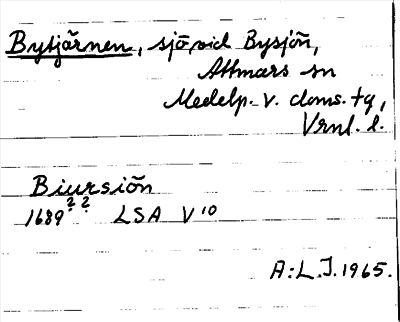 Bytjärnen, sjö, vid Bysjön,
Attmars sn
Medelp. v. doms. tg,
Vrnl. l.
Biursiön
1689?? LSA V 10
A:L.J. 1965.